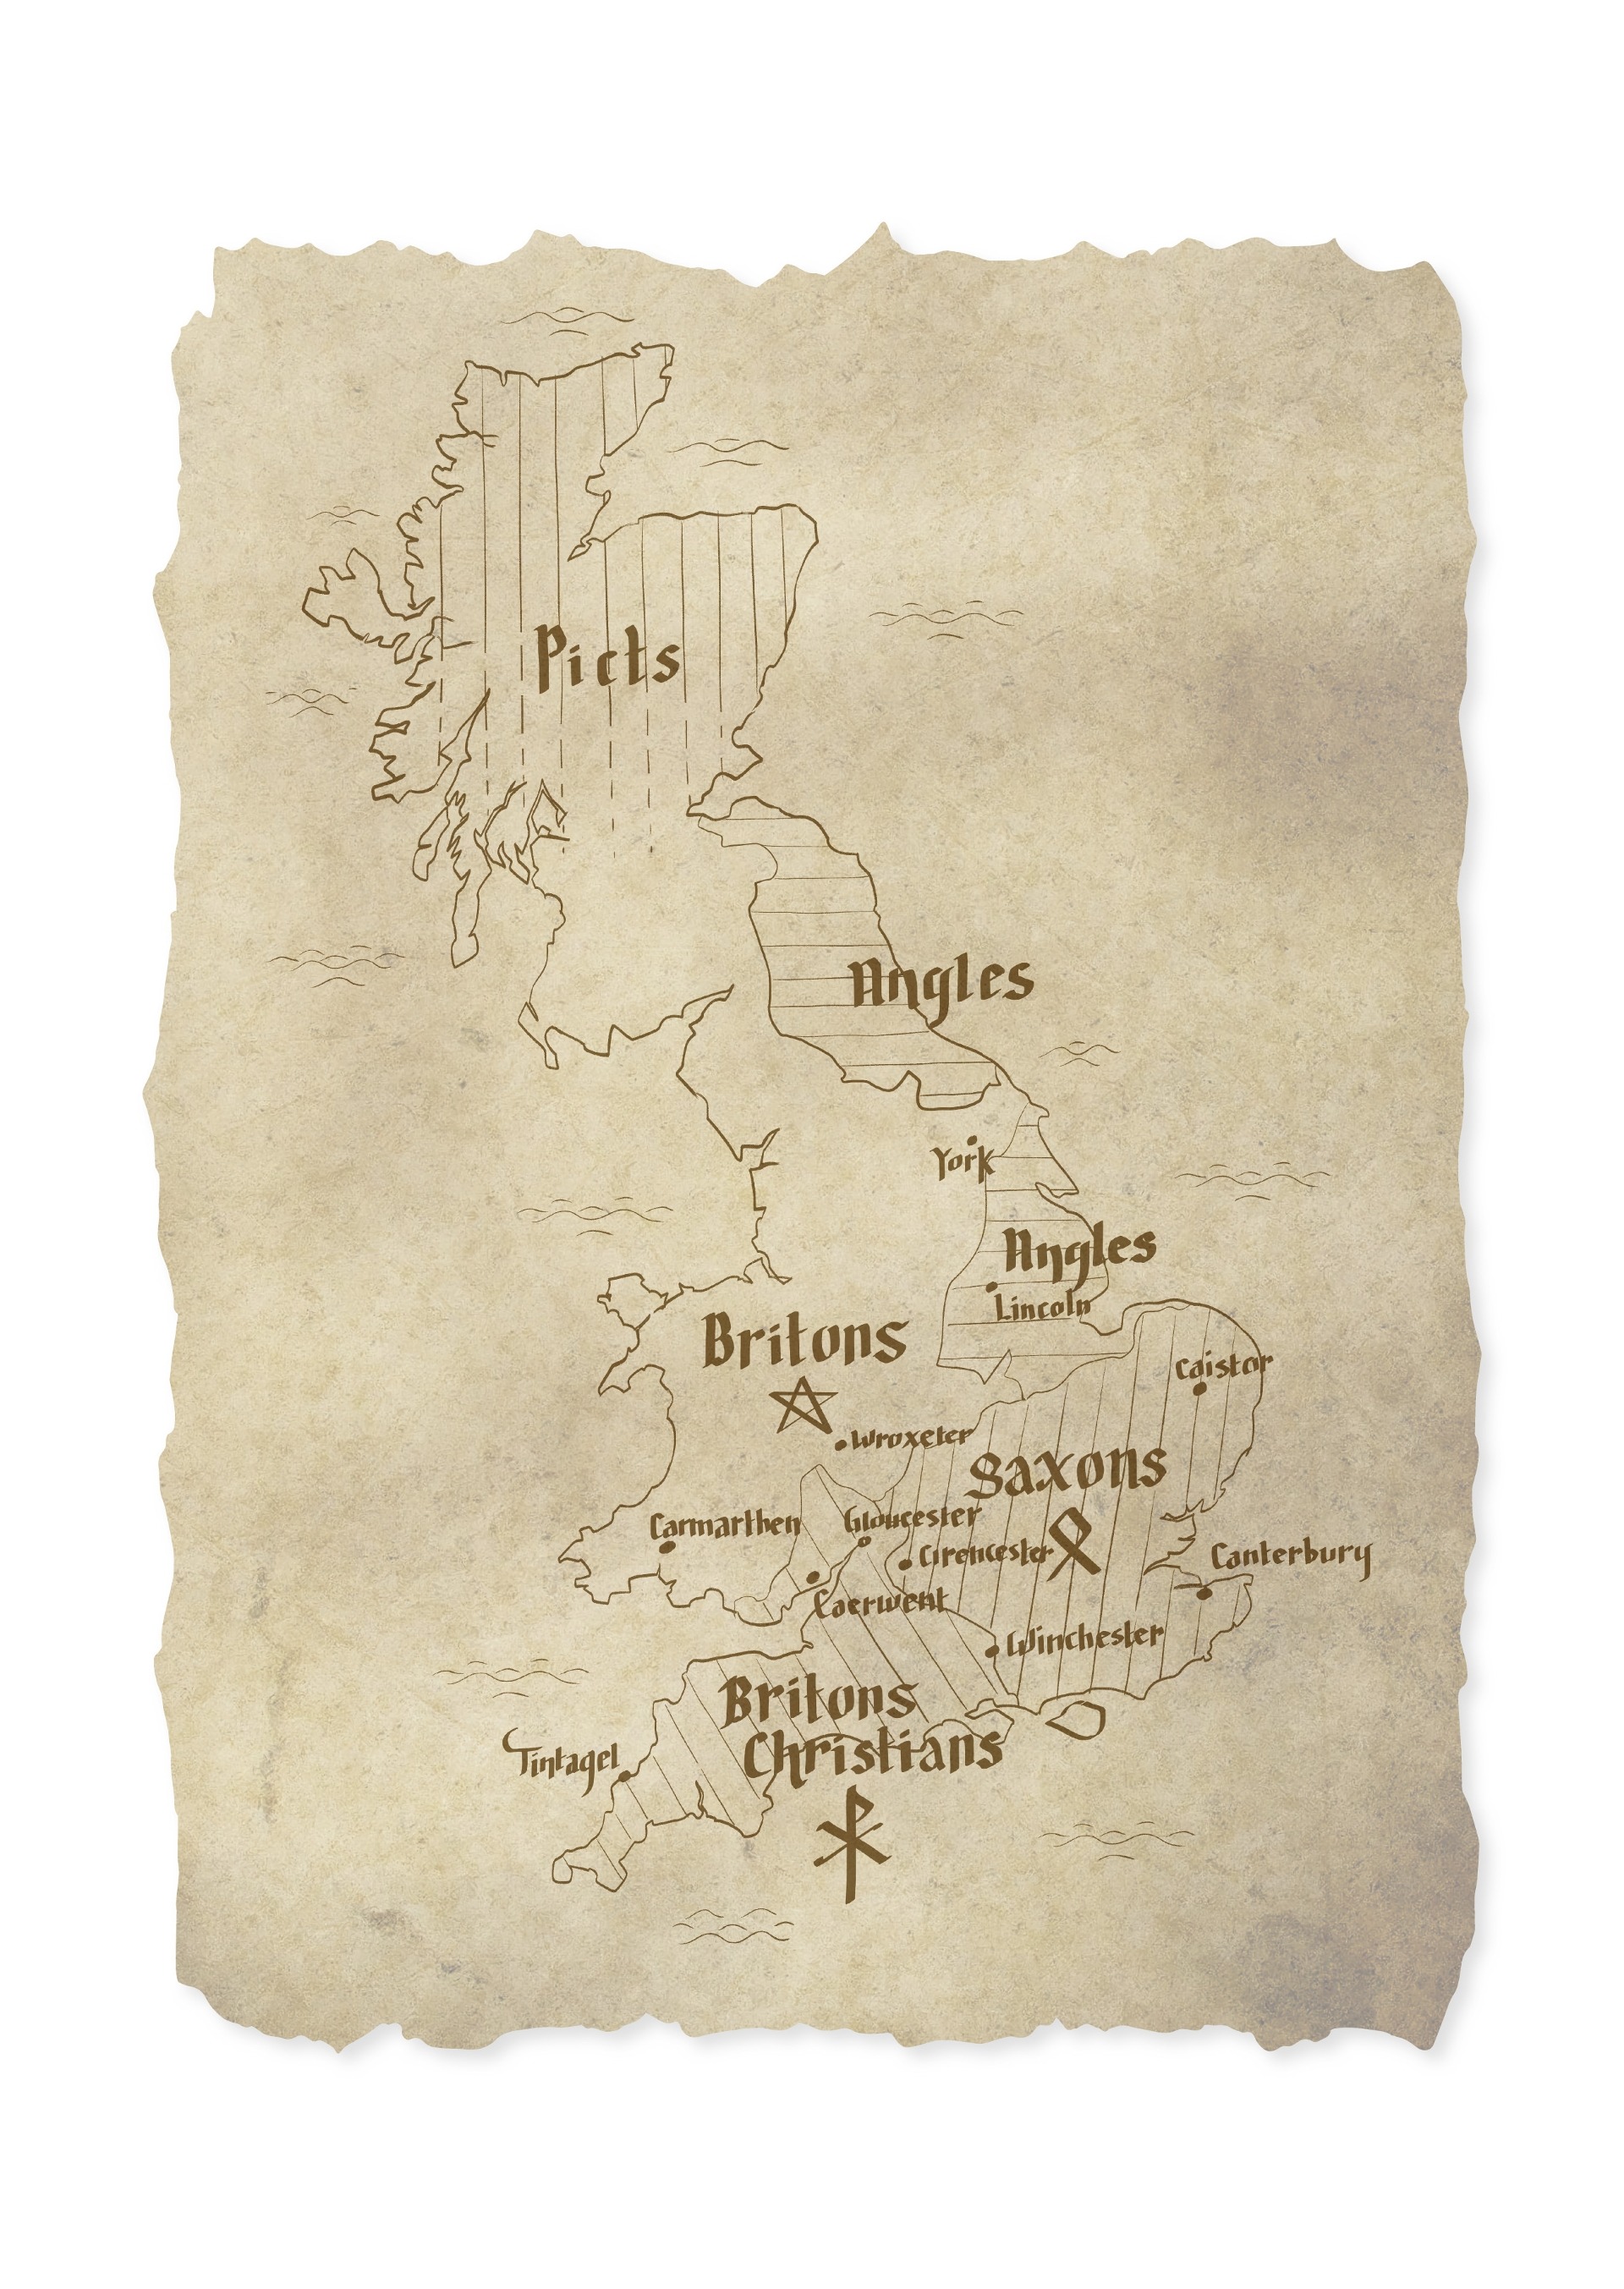 Picts
Angles
York
Angles
Lincoln
Britons
Caistor
Wroxeter
Saxons
Carmarthen
Gloucester
Cirencester
Canterbury
Caerwent
Winchester
Britons
Christians
Tintagel